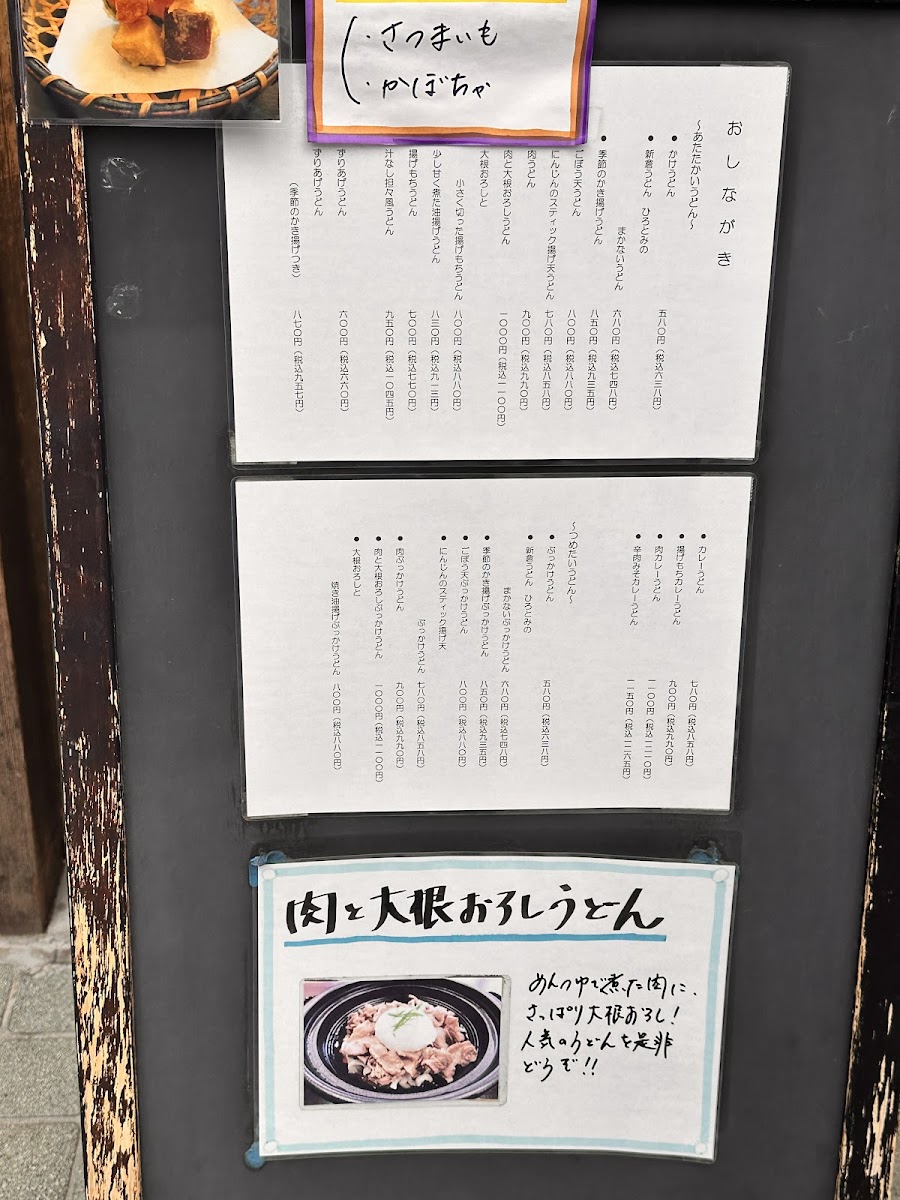 ・さつまいも
・かぼちゃ
おしながき
～あたたかいうどん～
● かけうどん 五八〇円(税込六三八円)
● 新倉うどん ひろとみの
まかないうどん 六八〇円(税込七四八円)
● 季節のかき揚げうどん 八五〇円(税込九三五円)
ごぼう天うどん 八〇〇円(税込八八〇円)
にんじんのスティック揚げ天うどん 七八〇円(税込八五八円)
肉うどん 九〇〇円(税込九九〇円)
肉と大根おろしうどん 一〇〇〇円(税込一一〇〇円)
大根おろしと
小さく切った揚げもちうどん 八〇〇円(税込八八〇円)
少し甘く煮た油揚げうどん 八三〇円(税込九一三円)
揚げもちうどん 七〇〇円(税込七七〇円)
汁なし担々風うどん 九五〇円(税込一〇四五円)
ずりあげうどん 六〇〇円(税込六六〇円)
ずりあげうどん
(季節のかき揚げつき) 八七〇円(税込九五七円)
● カレーうどん 七八〇円(税込八五八円)
● 揚げもちカレーうどん 九〇〇円(税込九九〇円)
● 肉カレーうどん 一一〇〇円(税込一二一〇円)
● 辛肉みそカレーうどん 一一五〇円(税込一二六五円)
～つめたいうどん～
● ぶっかけうどん 五八〇円(税込六三八円)
● 新倉うどん ひろとみの
まかないぶっかけうどん 六八〇円(税込七四八円)
● 季節のかき揚げぶっかけうどん 八五〇円(税込九三五円)
● ごぼう天ぶっかけうどん 八〇〇円(税込八八〇円)
● にんじんのスティック揚げ天
ぶっかけうどん 七八〇円(税込八五八円)
● 肉ぶっかけうどん 九〇〇円(税込九九〇円)
● 肉と大根おろしぶっかけうどん 一〇〇〇円(税込一一〇〇円)
● 大根おろしと
焼き油揚げぶっかけうどん 八〇〇円(税込八八〇円)
肉と大根おろしうどん
めんつゆで煮た肉に、
さっぱり大根おろし!
人気のうどんを是非
どうぞ!!